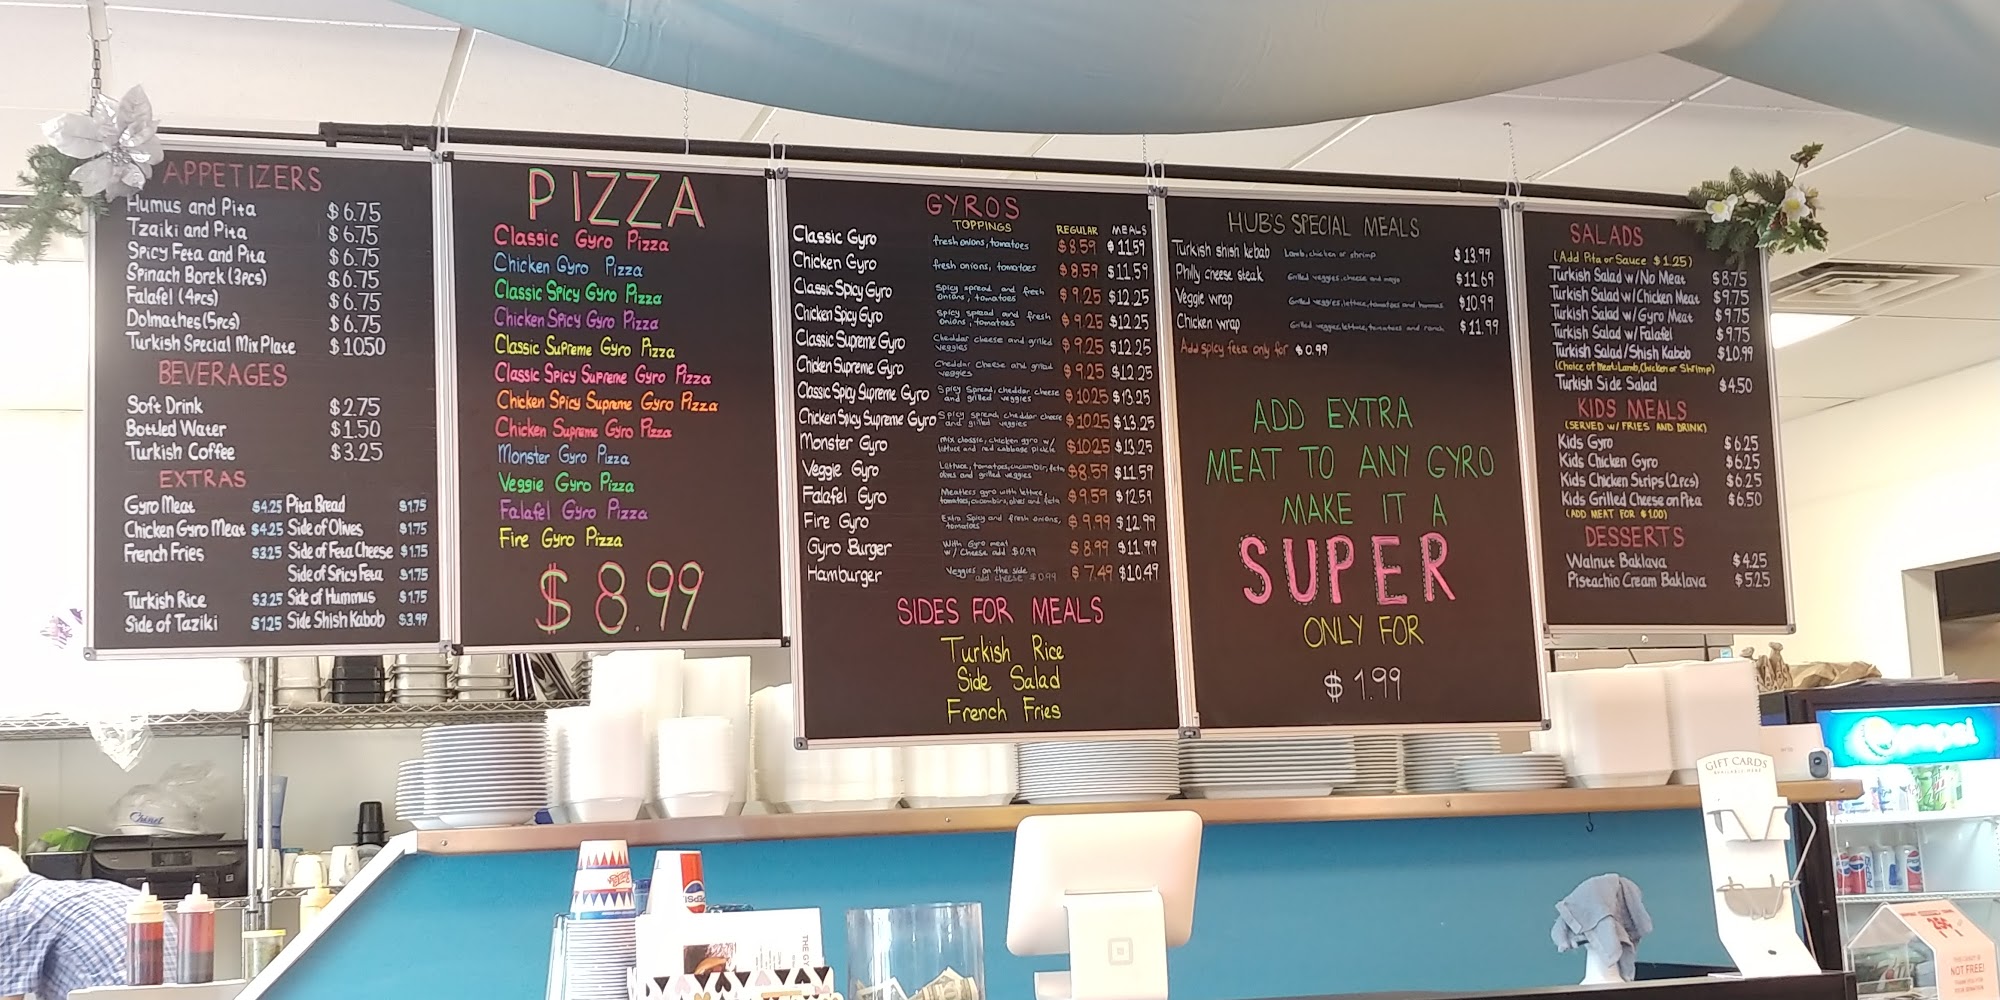 APPETIZERS
Humus and Pita $6.75
Tzaiki and Pita $6.75
Spicy Feta and Pita $6.75
Spinach Borek (3pcs) $6.75
Falafel (4pcs) $6.75
Dolmathes (5pcs) $6.75
Turkish Special Mix Plate $10.50
BEVERAGES
Soft Drink $2.75
Bottled Water $1.50
Turkish Coffee $3.25
EXTRAS
Gyro Meat $4.25 Pita Bread $1.75
Chicken Gyro Meat $4.25 Side of Olives $1.75
French Fries $3.25 Side of Feta Cheese $1.75
Side of Spicy Feta $1.75
Turkish Rice $3.25 Side of Hummus $1.75
Side of Taziki $1.25 Side Shish Kabob $3.99
PIZZA
Classic Gyro Pizza
Chicken Gyro Pizza
Classic Spicy Gyro Pizza
Chicken Spicy Gyro Pizza
Classic Supreme Gyro Pizza
Classic Spicy Supreme Gyro Pizza
Chicken Spicy Supreme Gyro Pizza
Chicken Supreme Gyro Pizza
Monster Gyro Pizza
Veggie Gyro Pizza
Falafel Gyro Pizza
Fire Gyro Pizza
$8.99
GYROS
TOPPINGS REGULAR MEALS
Classic Gyro fresh onions, tomatoes $8.59 $11.59
Chicken Gyro fresh onions, tomatoes $8.59 $11.59
Classic Spicy Gyro Spicy spread and fresh onions, tomatoes $9.25 $12.25
Chicken Spicy Gyro Spicy spread and fresh onions, tomatoes $9.25 $12.25
Classic Supreme Gyro Cheddar cheese and grilled veggies $9.25 $12.25
Chicken Supreme Gyro Cheddar Cheese and grilled veggies $9.25 $12.25
Classic Spicy Supreme Gyro Spicy Spread, cheddar cheese and grilled veggies $10.25 $13.25
Chicken Spicy Supreme Gyro Spicy spread, cheddar cheese and grilled veggies $10.25 $13.25
Monster Gyro mix classic, chicken gyro w/ lettuce and red cabbage pickle $10.25 $13.25
Veggie Gyro Lettuce, tomatoes, cucumbir, feta olives and grilled veggies $8.59 $11.59
Falafel Gyro Meatless gyro with lettuce, tomatoes, cucumbirs, olives and feta $9.59 $12.59
Fire Gyro Extra Spicy and fresh onions, tomatoes $9.99 $12.99
Gyro Burger With Gyro meat w/ Cheese add $0.99 $8.99 $11.99
Hamburger Veggies on the side add cheese $0.99 $7.49 $10.49
SIDES FOR MEALS
Turkish Rice
Side Salad
French Fries
HUB'S SPECIAL MEALS
Turkish shish kebab Lamb, chicken or shrimp $13.99
Philly cheese steak Grilled veggies, cheese and mayo $11.69
Veggie wrap Grilled veggies, lettuce, tomatoes and hummus $10.99
Chicken wrap Grilled veggies, lettuce, tomatoes and ranch $11.99
Add spicy feta only for $0.99
ADD EXTRA
MEAT TO ANY GYRO
MAKE IT A
SUPER
ONLY FOR
$1.99
SALADS
(Add Pita or Sauce $1.25)
Turkish Salad w/No Meat $8.75
Turkish Salad w/Chicken Meat $9.75
Turkish Salad w/Gyro Meat $9.75
Turkish Salad w/Falafel $9.75
Turkish Salad/Shish Kabob $10.99
(Choice of Meat: Lamb, Chicken or Shrimp)
Turkish Side Salad $4.50
KIDS MEALS
(SERVED W/ FRIES AND DRINK)
Kids Gyro $6.25
Kids Chicken Gyro $6.25
Kids Chicken Strips (2pcs) $6.25
Kids Grilled Cheese on Pita $6.50
(ADD MEAT FOR $1.00)
DESSERTS
Walnut Baklava $4.25
Pistachio Cream Baklava $5.25
GIFT CARDS
AVAILABLE HERE
pepsi
Chinet
PEPSI
THE GY
25¢
NOT FREE!